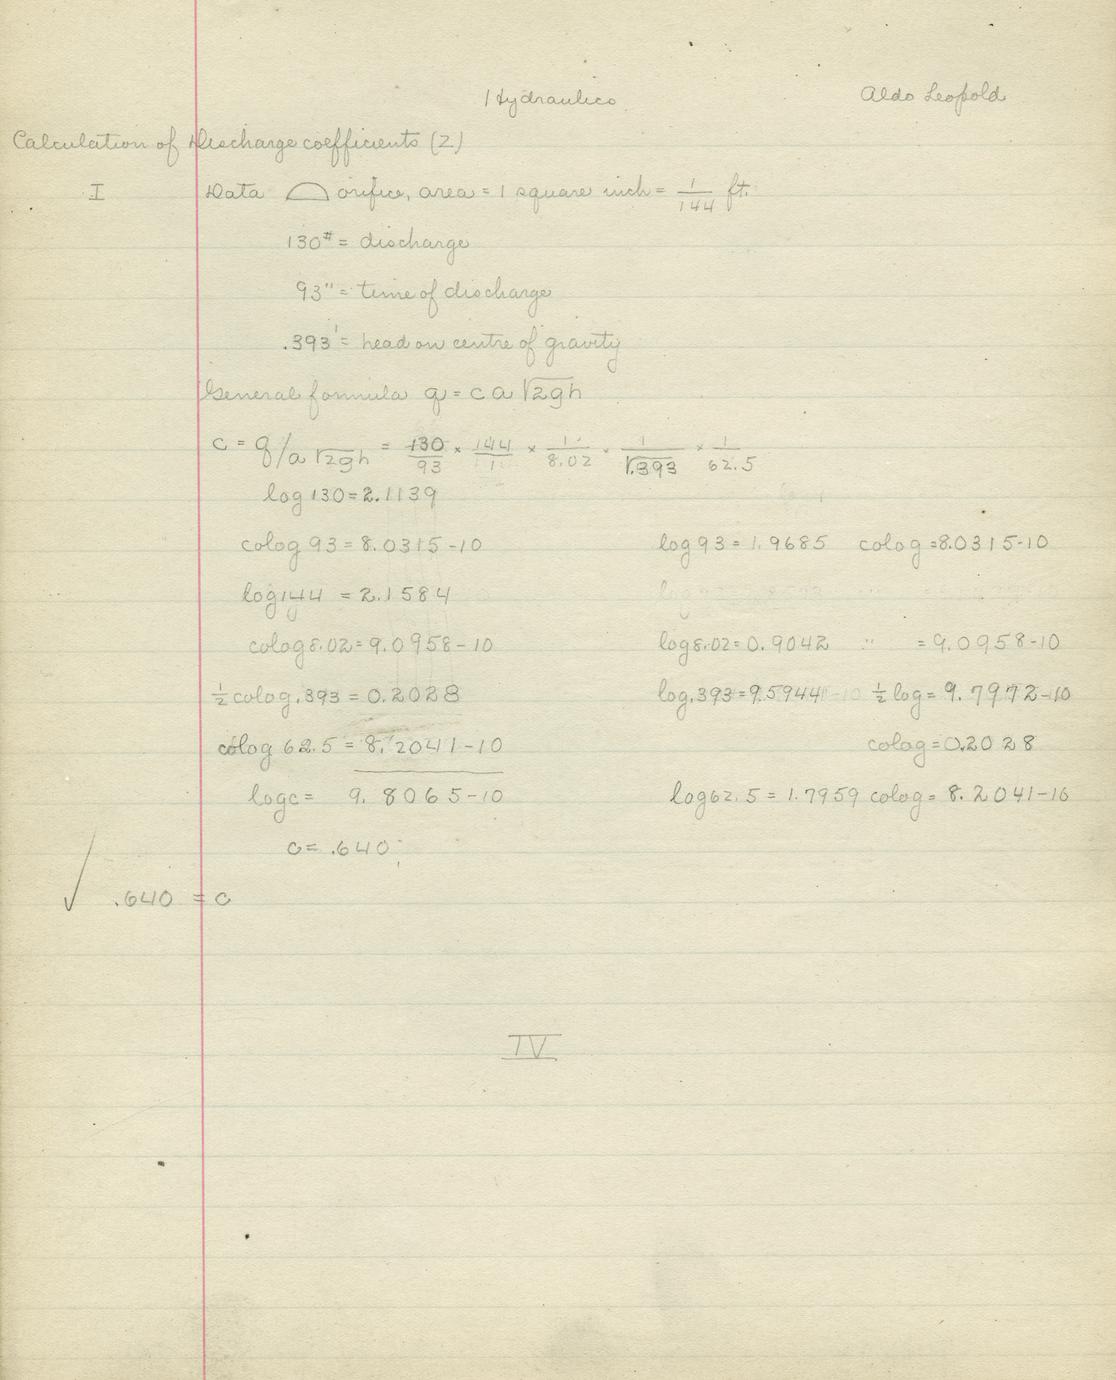 Hydraulics Aldo Leopold
Calculation of Discharge coefficients (2)
I Data orifice, area = 1 square inch = 1/144 ft.
130# = discharge
93" = time of discharge
.393' = head on centre of gravity
General formula q = c a √2gh
c = q/a √2gh = 130/93 × 144/1 × 1/8.02 × 1/√.393 × 1/62.5
log 130 = 2.1139
colog 93 = 8.0315-10 log 93 = 1.9685 colog = 8.0315-10
log 144 = 2.1584
colog 8.02 = 9.0958-10 log 8.02 = 0.9042 " = 9.0958-10
½ colog .393 = 0.2028 log .393 = 9.5944-10 ½ log = 9.7972-10
colog 62.5 = 8.2041-10 colog = 0.2028
log c = 9.8065-10 log 62.5 = 1.7959 colog = 8.2041-10
c = .640
✓ .640 = c
IV